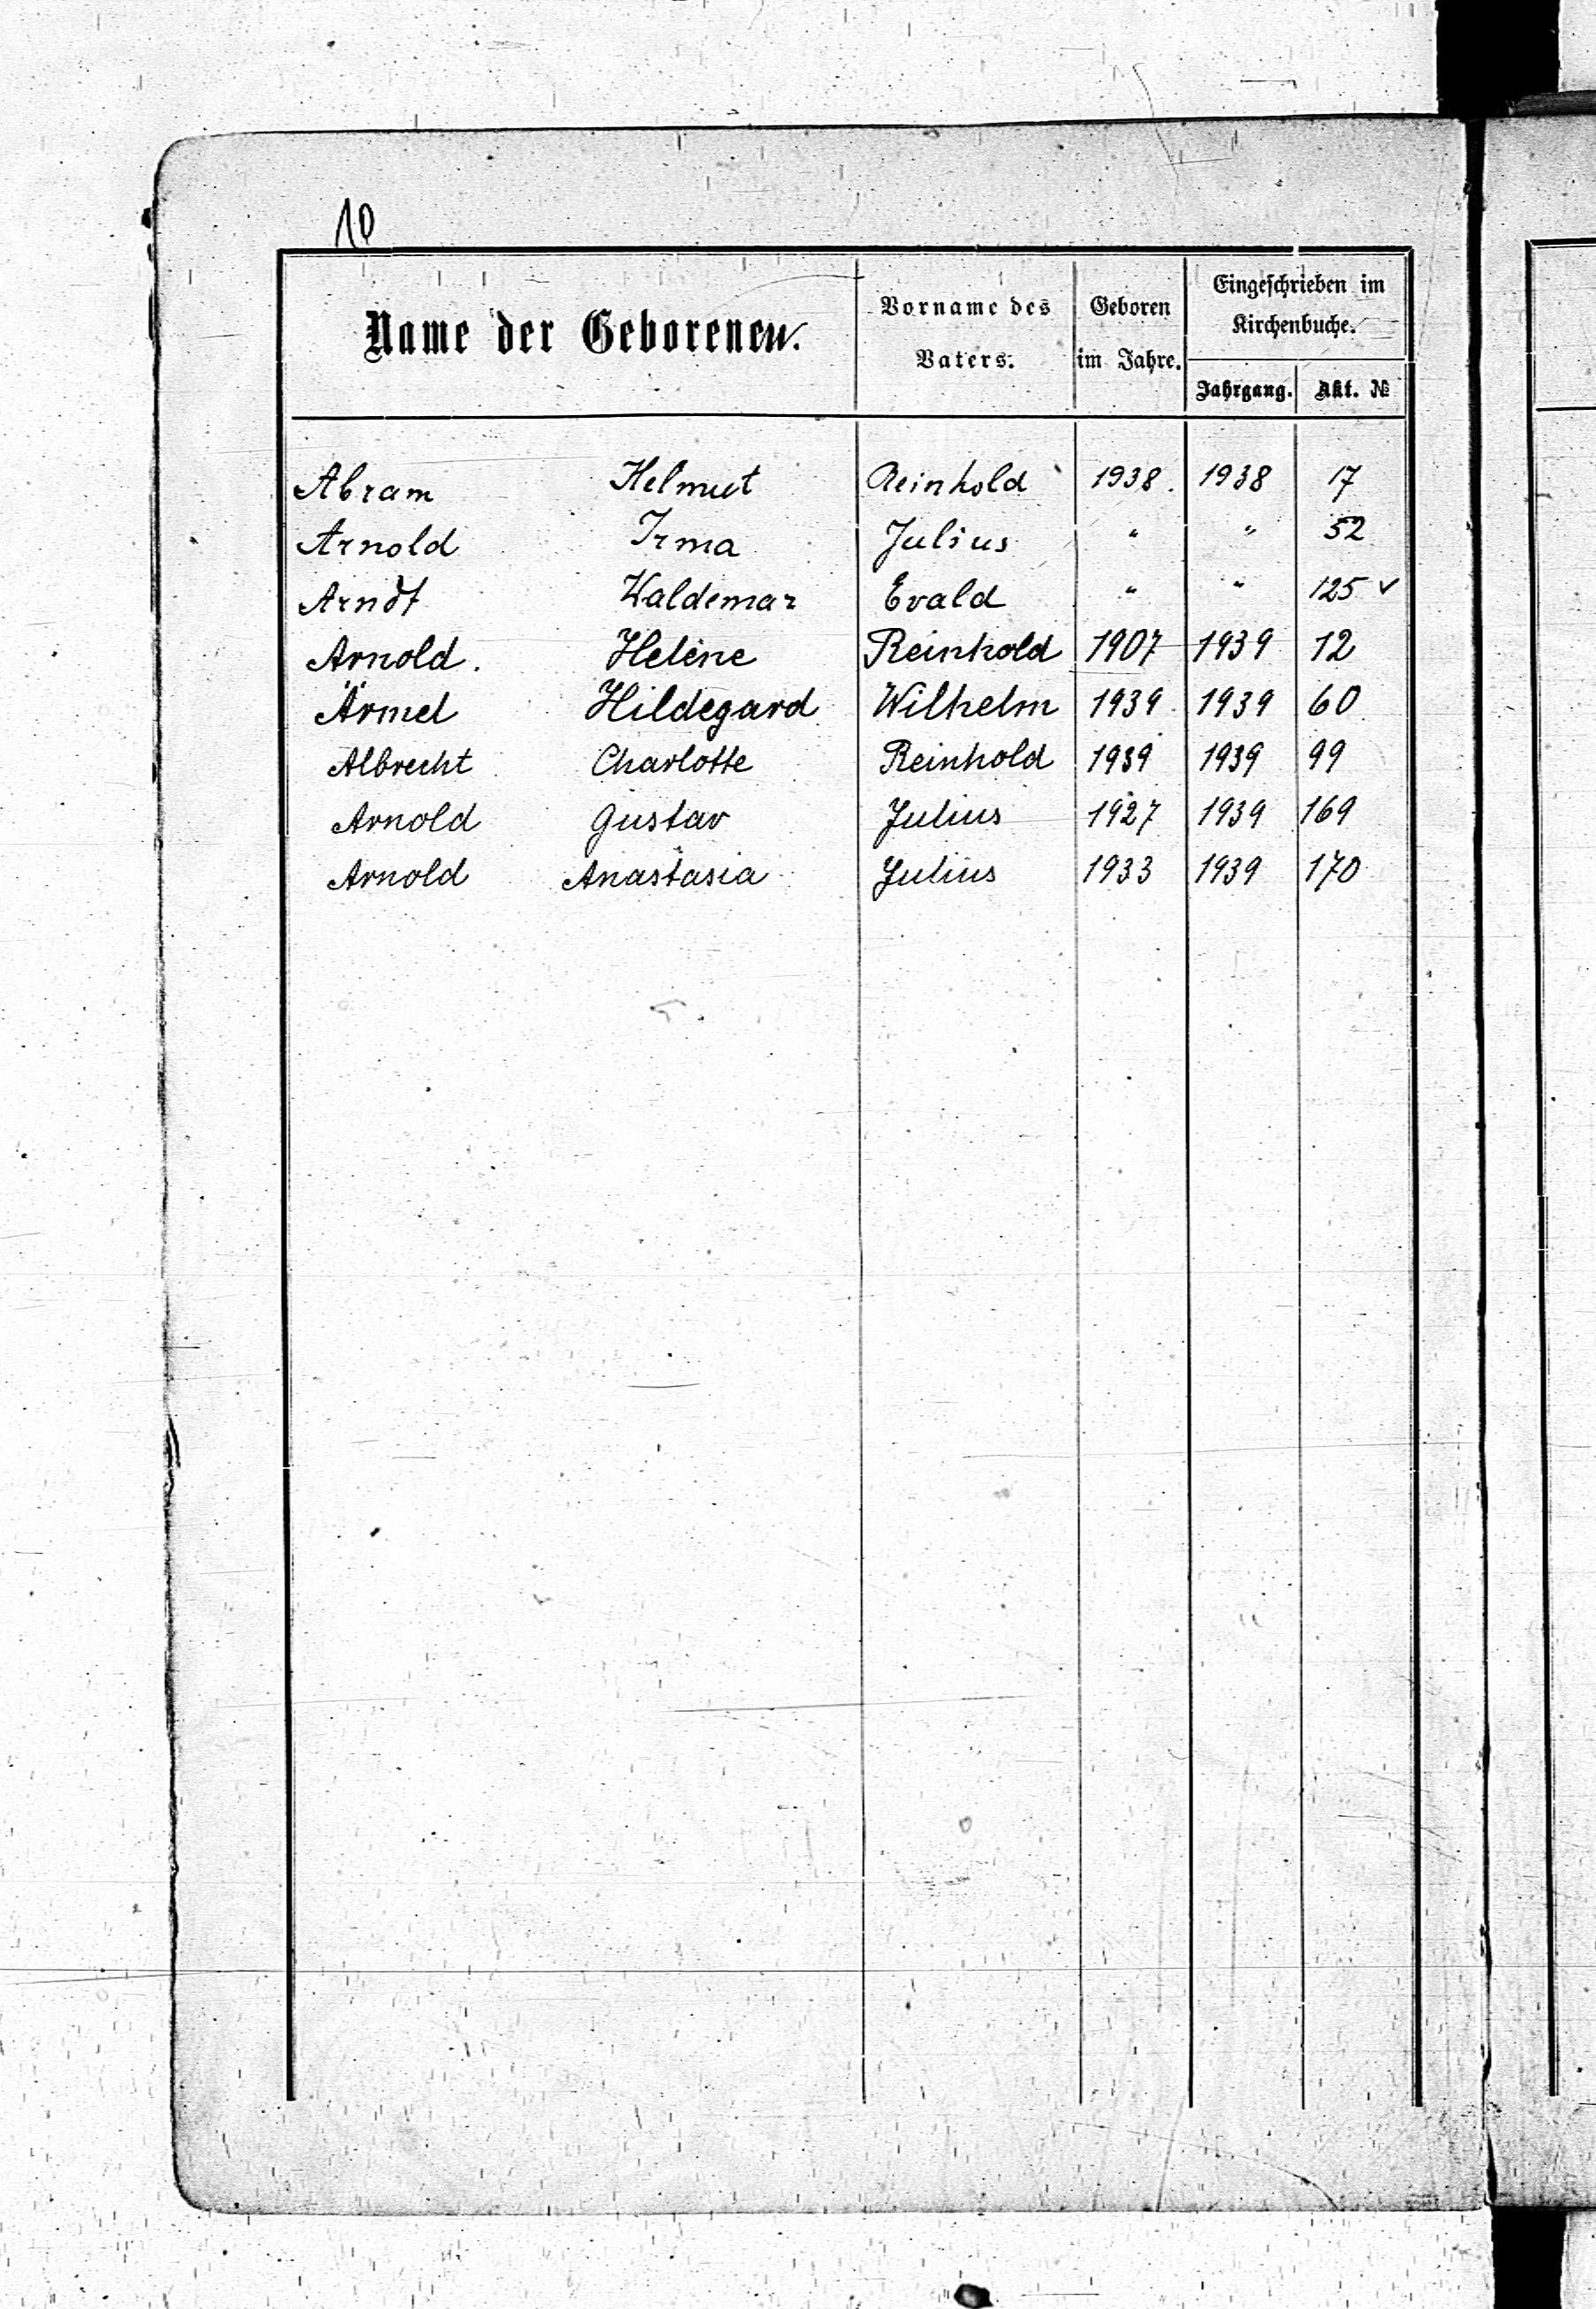 10
Name der Geborenen.
Vorname des Vaters.
Geboren im Jahre.
Eingeschrieben im Kirchenbuche.
Jahrgang.
Akt. №
Abram Helmut Reinhold 1938. 1938 17
Arnold Irma Julius " " 52
Arndt Waldemar Evald " " 125 ✓
Arnold. Helene Reinhold 1907 1939 12
Ärmel Hildegard Wilhelm 1939 1939 60
Albrecht Charlotte Reinhold 1939 1939 99
Arnold Gustav Julius 1927 1939 169
Arnold Anastasia Julius 1933 1939 170